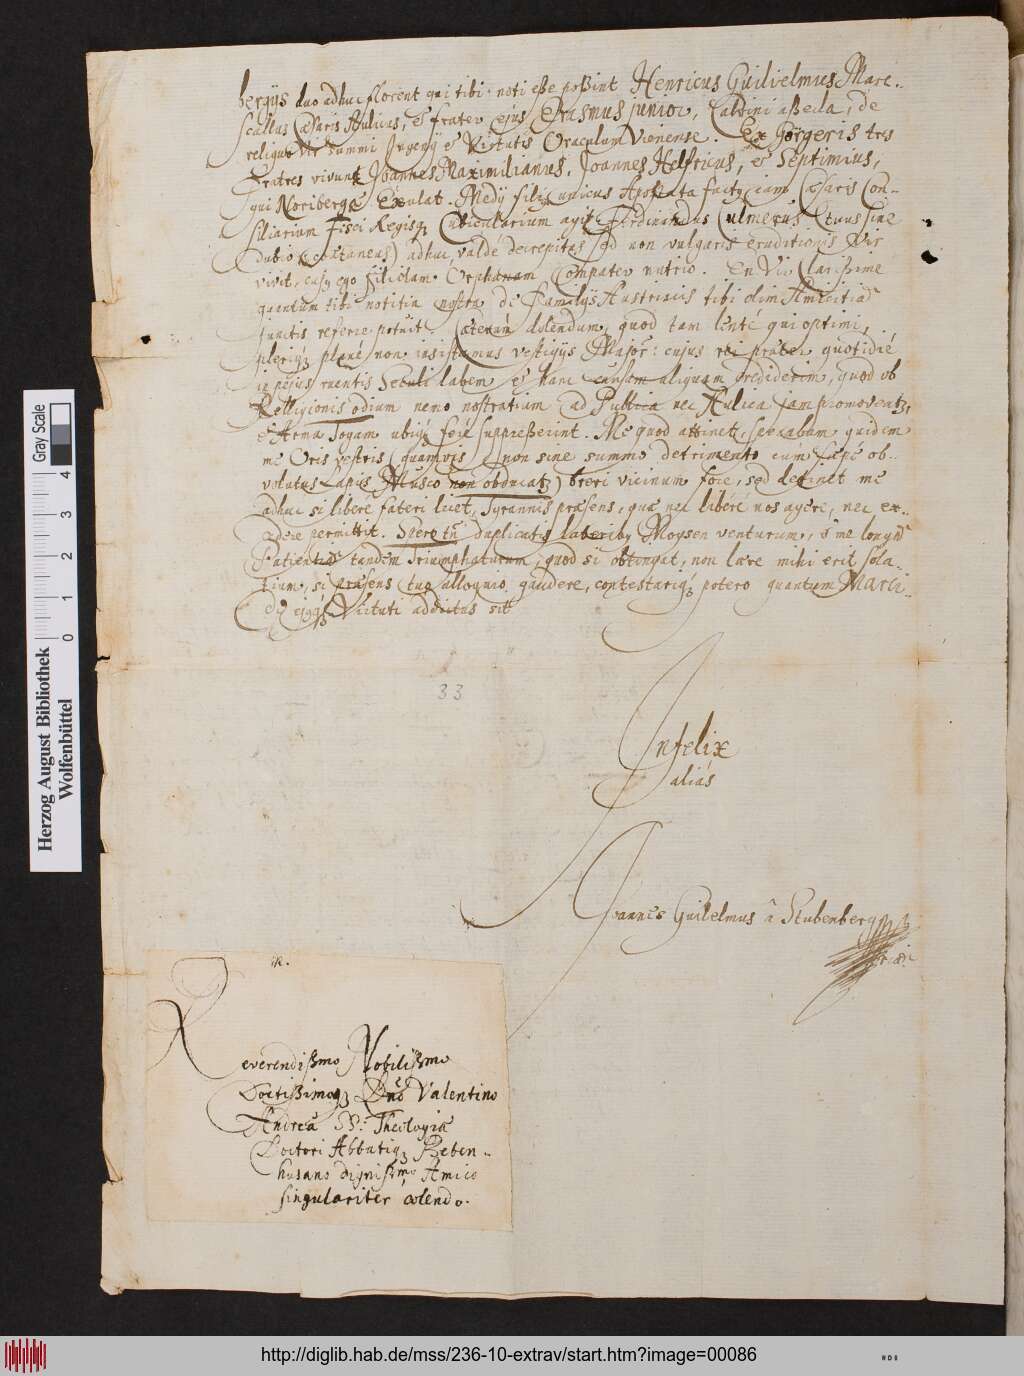 bergijs duo adhuc florent qui tibi noti esse possint Henricus Guilielmus Mare-
scallus Cæsaris Aulicus, et frater ejus Erasmus junior, Calvini asseda, de
reliquo vir summi Ingenij et Virtutis Oraculum Viennense. Ex Görgeris tres
fratres vivunt Joannes Maximilianus, Joannes Helfricus, et Septimius,
qui Noribergæ Exulat. Medij filius unicus Apostata factus jam Cæsaris Con-
siliarium Fisci Regisq Cubicularium agit Ferdinandus Culmerus (tuus sine
dubio coætaneus) adhuc valdé decrepitus sed non vulgaris eruditionis Vir
vivit, cujus ego filiolam Orphanam Compater nutrio. En Vir Clarissime
quantum tibi notitia nostra de Familijs Austriacis tibi olim Amicitiâ
junctis referre potuit. Cæterum dolendum, quod tam lenté qui optimi,
pleriq plané non insistamus vestigijs Major: cujus rei præbet quotidié
in pejus ruentis Seculi labem et hanc causam aliquam crediderim, quod ob
Relligionis odium nemo nostratium ad Publica nec Aulica jam promoveatur,
et Arma Togam ubiq feré suppresserint. Me quod attinet, sperabam quidem
me Oris vestris (quamvis non sine summo detrimento cum sæpé ob-
volutus Lapis Musco non obducatur) brevi vicinum fore, sed detinet me
adhuc si liberé fateri licet, Tyrannis præsens, quæ nec liberé nos agere, nec ex-
cedere permittit. Spero tn duplicatis laterib Moysen venturum, et me longâ
Patientiâ tandem Triumphaturum, quod si obtingat, non leve mihi erit sola-
tium, si præsens tuo alloquio gaudere, contestariq potero quantum Marci-
dq ejqs Virtuti addictus sit
33
Infelix
aliás
Joannes Guilelmus â Stubenberg
Reverendissmo Nobilissmo
Doctissimoq Dno Valentino
Andreæ SS: Theologiæ
Doctori Abbatiq Beben-
husano dignissmo Amico
singulariter colendo.
Herzog August Bibliothek
Wolfenbüttel
Gray Scale
0 1 2 3 4
http://diglib.hab.de/mss/236-10-extrav/start.htm?image=00086